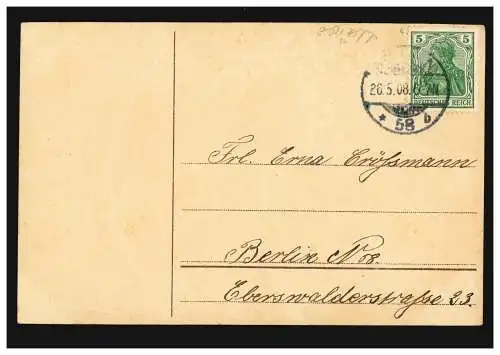 5 5
DEUTSCHES REICH
26.5.08.
* 58 b
Frl. Erna Crößmann
Berlin No 8.
Eberswalderstraße 23.